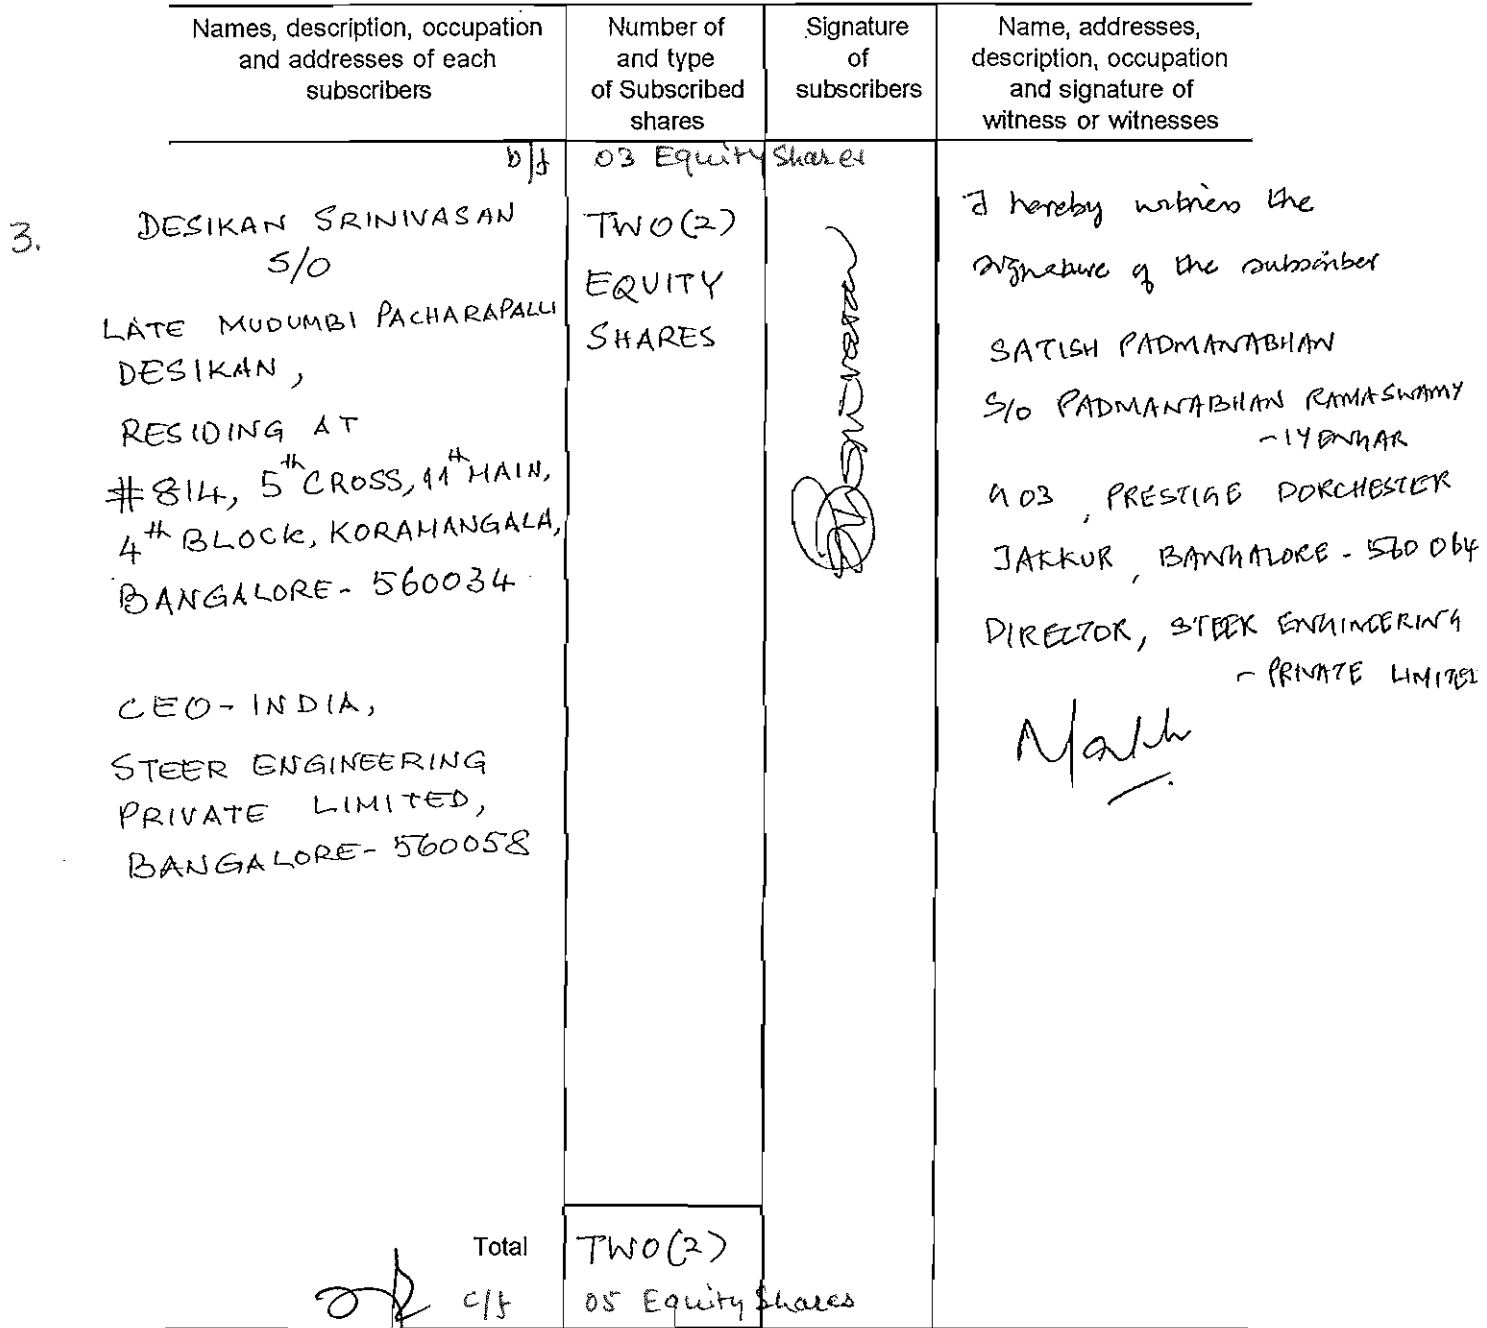 Names, description, occupation
and addresses of each
subscribers
Number of
and type
of Subscribed
shares
Signature
of
subscribers
Name, addresses,
description, occupation
and signature of
witness or witnesses
b/f 03 Equity Shares
3.
DESIKAN SRINIVASAN
S/O
LATE MUDUMBI PACHARAPALLI
DESIKAN,
RESIDING AT
#814, 5th CROSS, 11th MAIN,
4th BLOCK, KORAMANGALA,
BANGALORE - 560034
CEO - INDIA,
STEER ENGINEERING
PRIVATE LIMITED,
BANGALORE - 560058
TWO (2)
EQUITY
SHARES
I hereby witness the
signature of the subscriber
SATISH PADMANABHAN
S/o PADMANABHAN RAMASWAMY
- IYENGAR
903, PRESTIGE DORCHESTER
JAKKUR, BANGALORE - 560 064
DIRECTOR, STEER ENGINEERING
- PRIVATE LIMITED
Total TWO (2)
c/f 05 Equity Shares